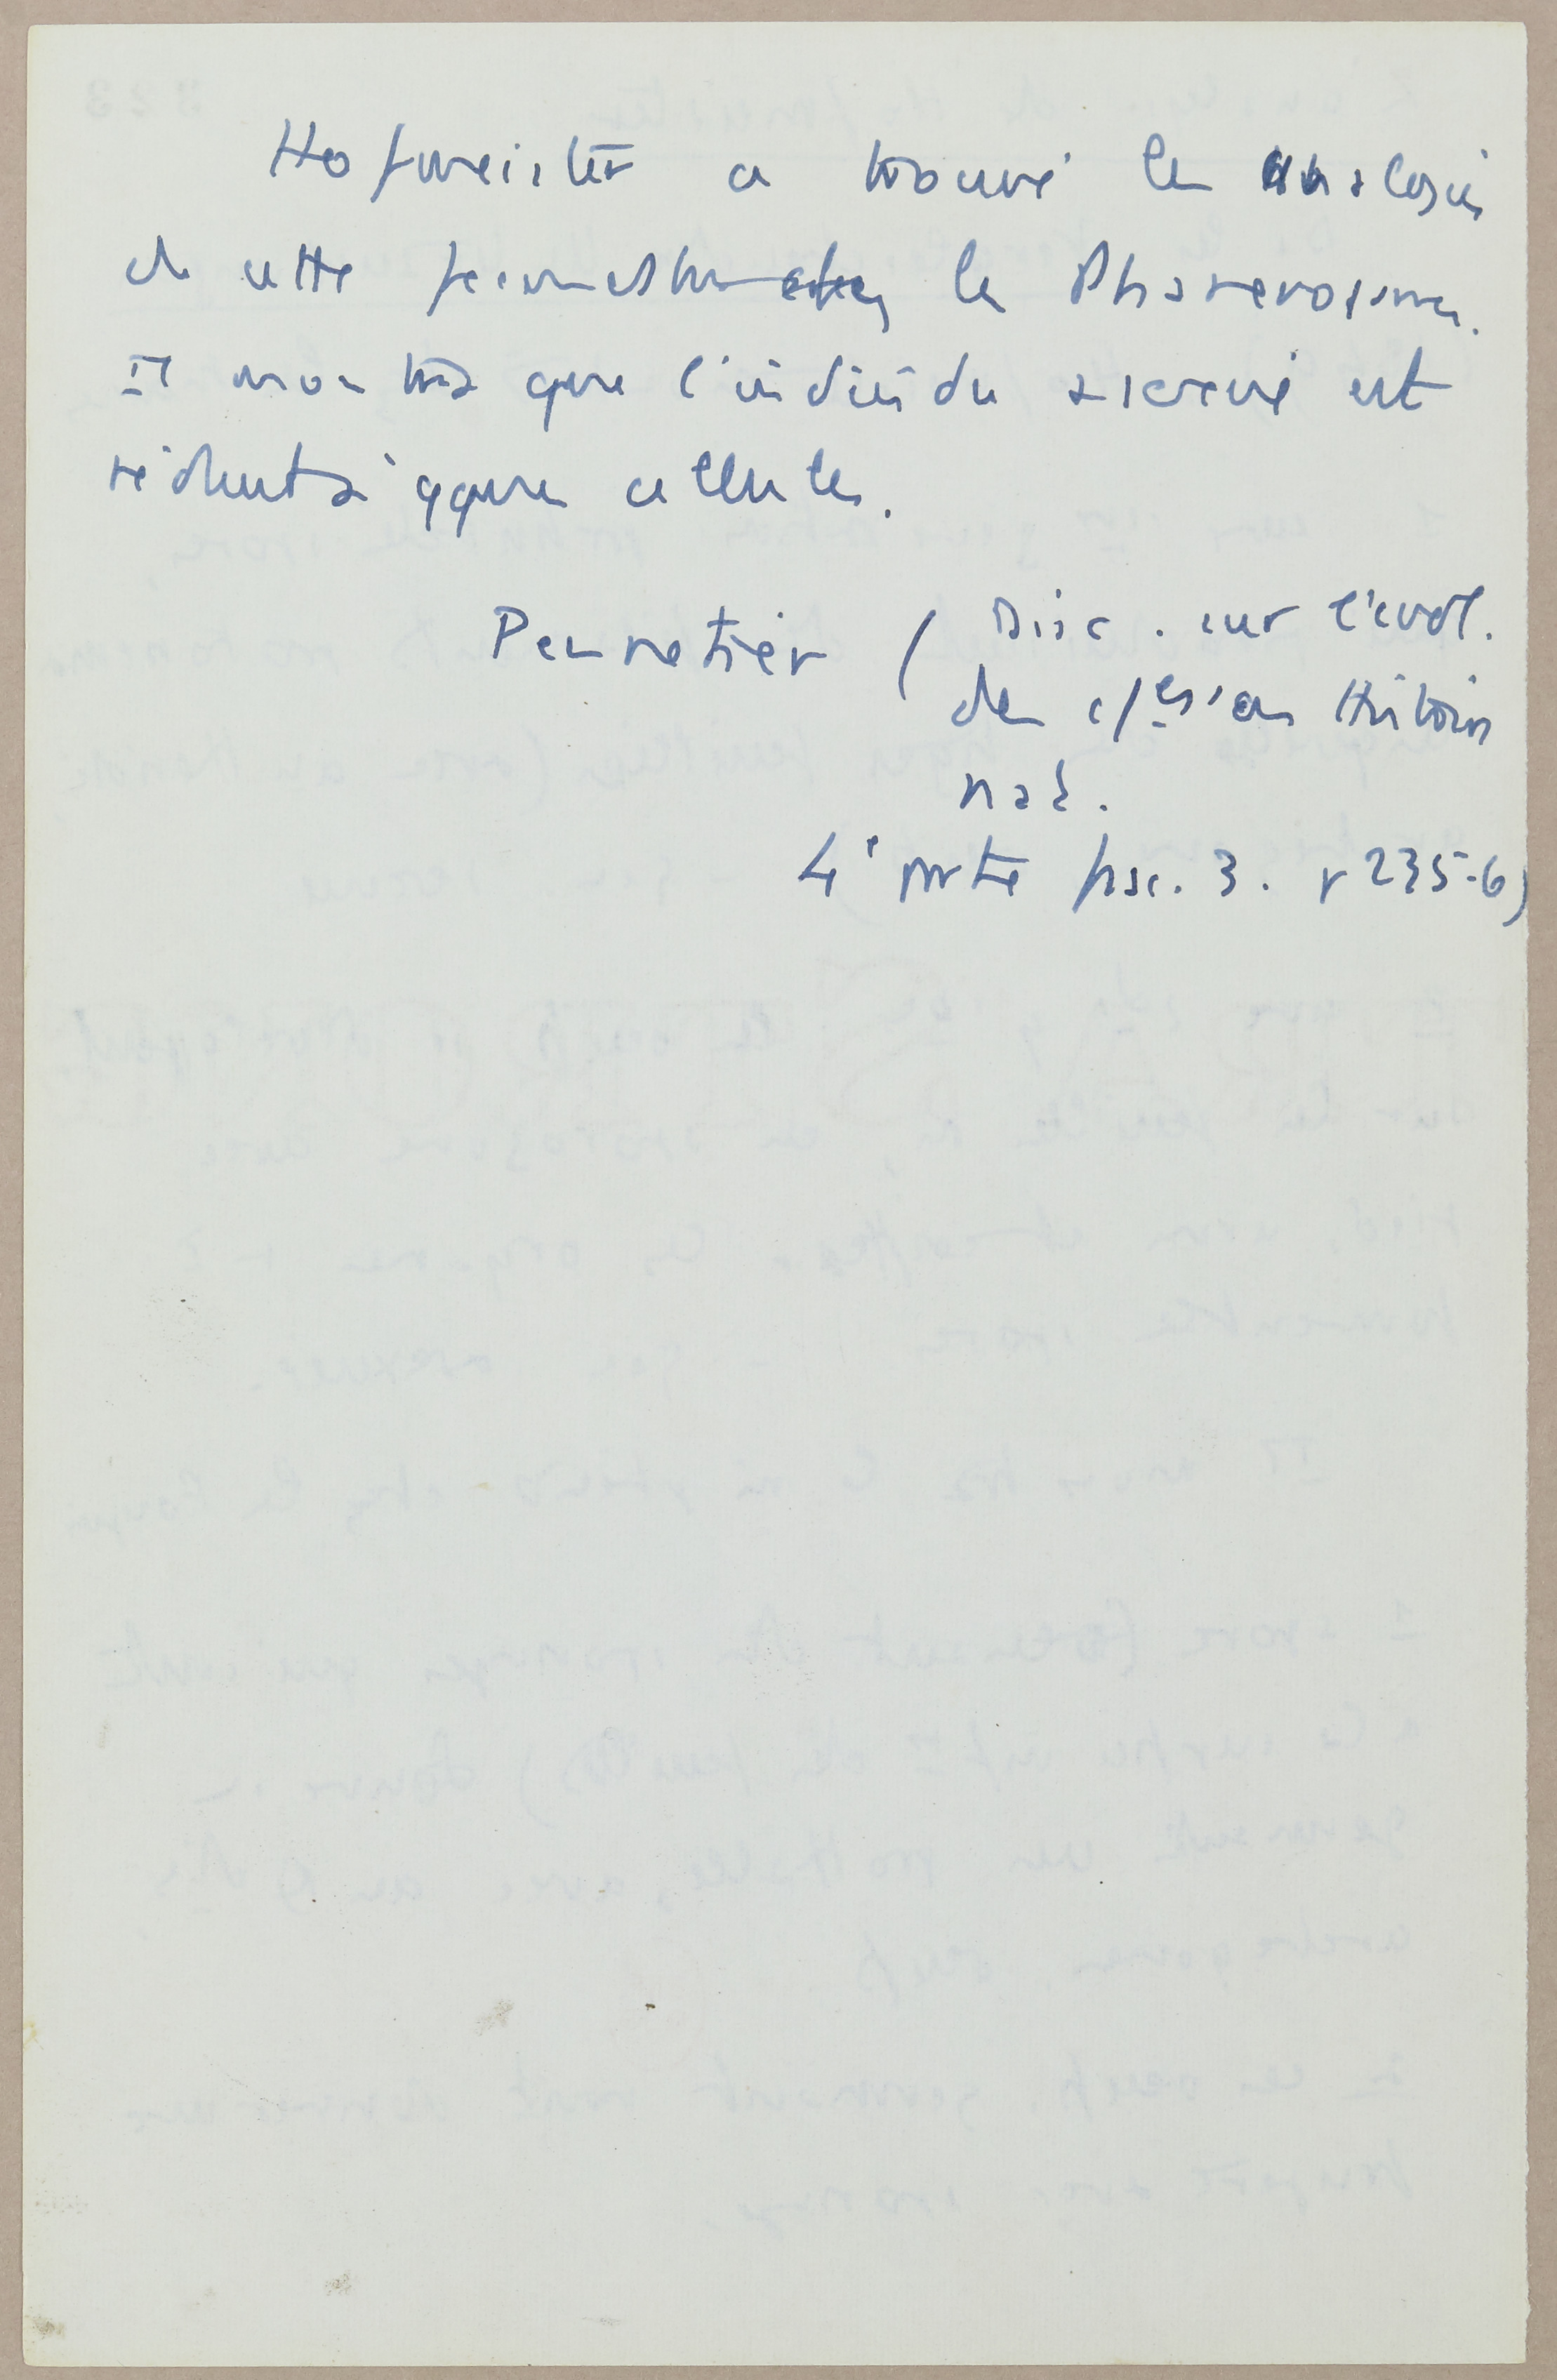 Hofmeister a trouvé les analogies
de cette fécondation chez les Phanérogames.
Il montra que l'individu sexué est
réduit à qques cellules.
Pennetier ( Disc. sur l'évol.
des c/ces en Histoire
nat.
4e partie fasc. 3. p 235-6)